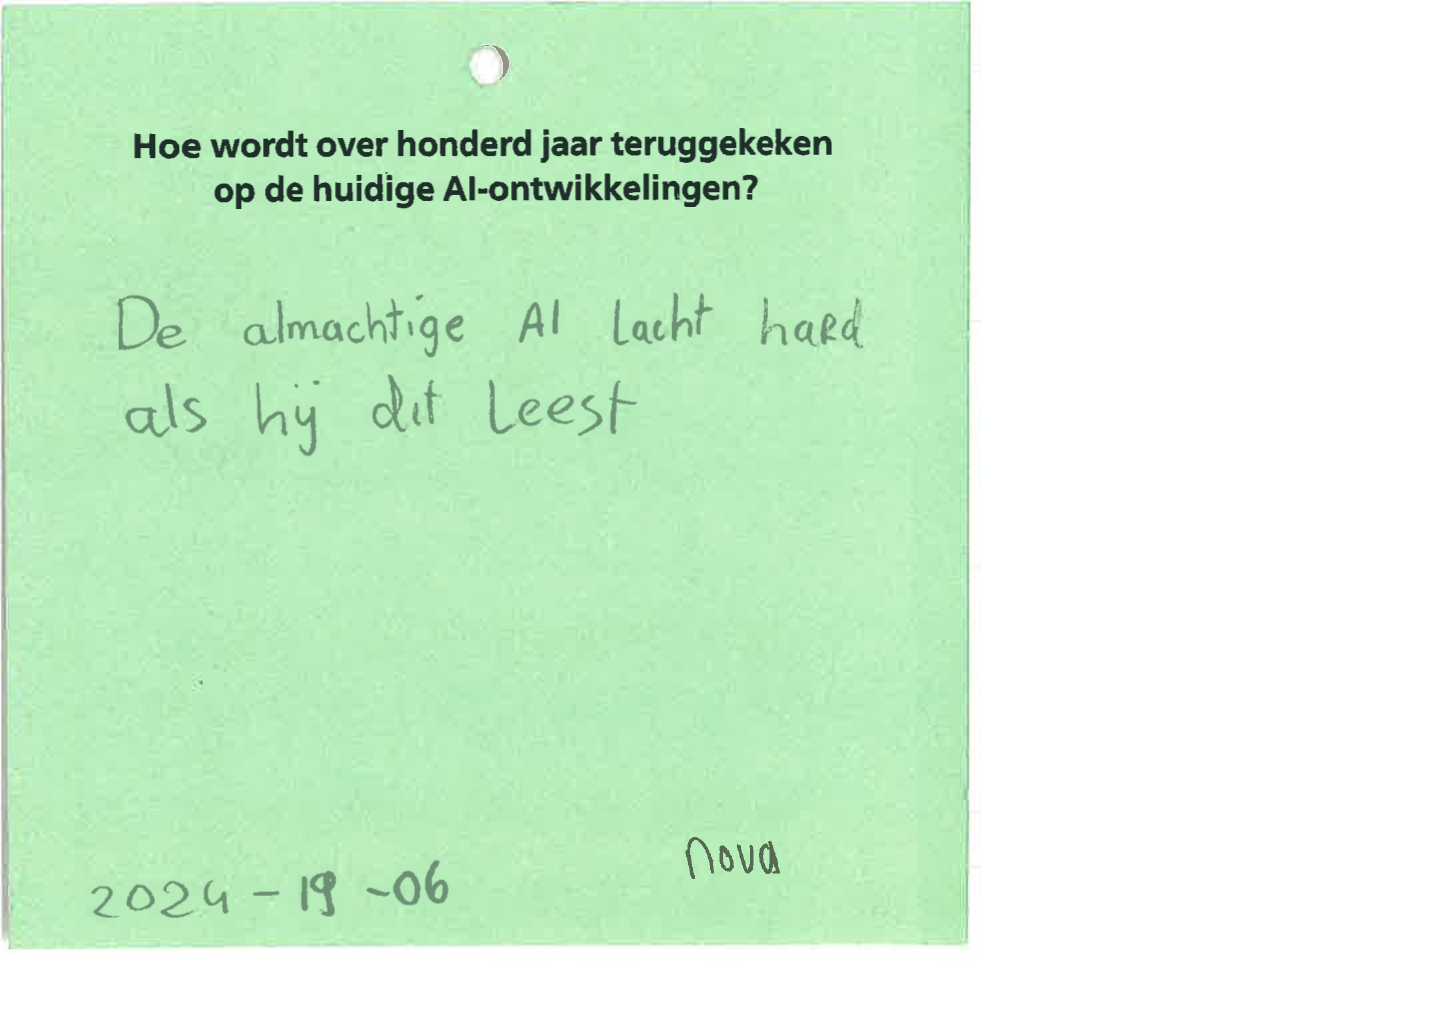 Hoe wordt over honderd jaar teruggekeken
op de huidige AI-ontwikkelingen?
De almachtige AI lacht hard
als hij dit leest
nova
2024-19-06